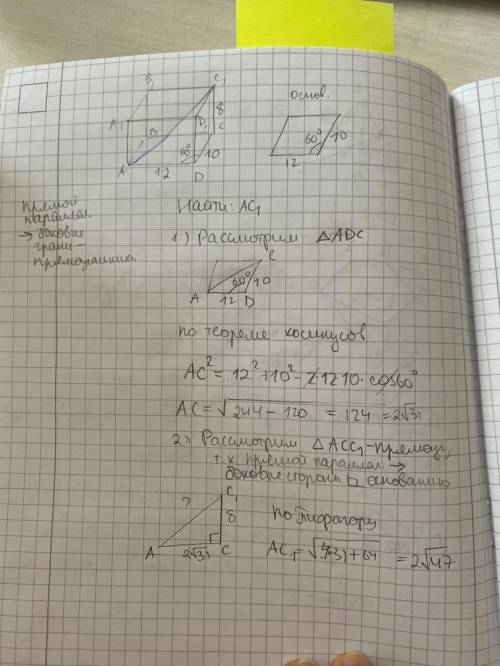 B₁ C₁
A₁ D₁
B C
8
60° 10
A 12 D
основ.
60° 10
12
Прямой
параллел.
→ боковые
грани -
прямоугольники
Найти: AC₁
1) Рассмотрим △ADC
C
60° 10
A 12 D
по теореме косинусов
AC² = 12² + 10² - 2·12·10·cos60°
AC = √244 - 120 = 124 = 2√31
2) Рассмотрим △ACC₁ - прямоуг,
т.к. прямой параллел. →
боковые стороны ⊥ основанию
C₁
?
8
A 2√31 C
по Пифагору
AC₁ = √4·31+64 = 2√47